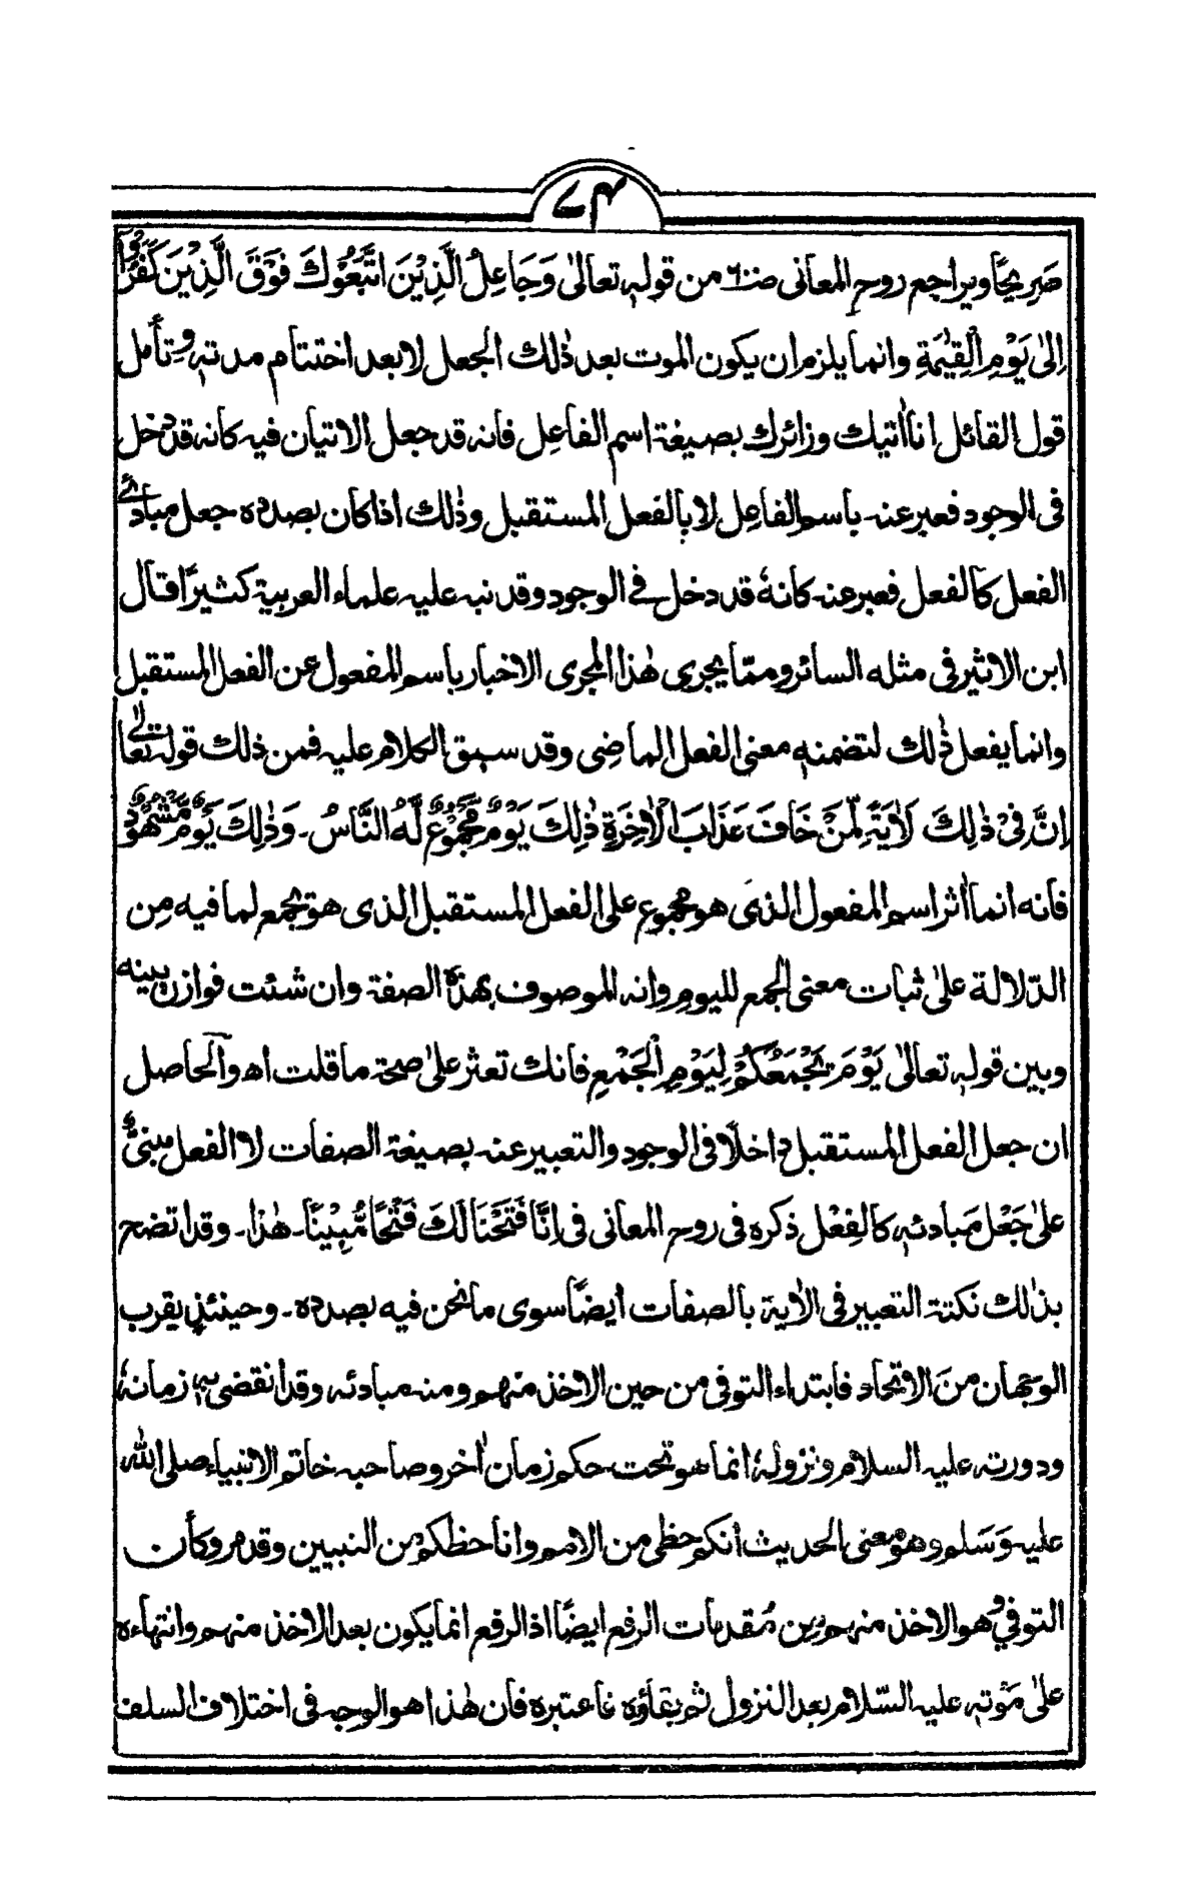 ٧٤
صَرِيحًا ويراجع روح المعانى من قولہٖ تعالىٰ وَجَاعِلُ الَّذِيْنَ اتَّبَعُوْكَ فَوْقَ الَّذِيْنَ كَفَرُوْا
اِلىٰ يَوْمِ الْقِيٰمَةِ وانما يلزم ان يكون الموت بعد ذٰلك الجعل لا بعد اختتام مدتہٖ وتأمل
قول القائل انا اٰتيك وزائرك بصيغة اسم الفاعل فانه قد جعل الاتيان فيه كانه قد دخل
فى الوجود فعبر عنہ باسم الفاعل لا بالفعل المستقبل وذٰلك اذا كان بصدده جعل مبادئے
الفعل كالفعل فعبر عنہ كانهٗ قد دخل فے الوجود وقد نبہ عليہ علماء العربية كثيرًا قال
ابن الاثير فى مثله السائر وممّا يجرى هٰذا المجرى الاخبار باسم المفعول عن الفعل المستقبل
وانما يفعل ذٰلك لتضمنهٖ معنى الفعل الماضى وقد سبق الكلام عليہ فمن ذلك قولہ تعالىٰ
اِنَّ فِىْ ذٰلِكَ لَاٰيَةً لِّمَنْ خَافَ عَذَابَ الْاٰخِرَةِ ذٰلِكَ يَوْمٌ مَّجْمُوْعٌ لَّهُ النَّاسُ۔ وَذٰلِكَ يَوْمٌ مَّشْهُوْدٌ
فانه انما اٰثر اسم المفعول الذى هو مجموع على الفعل المستقبل الذى هو يجمع لما فيه مِن
الدّلالة علىٰ ثبات معنى الجمع لليوم وانہ الموصوف بهذه الصفة وان شئت فوازن بينه
وبين قولہٖ تعالىٰ يَوْمَ يَجْمَعُكُمْ لِيَوْمِ الْجَمْعِ فانك تعثر علىٰ صحة ما قلت اھ والحاصل
ان جعل الفعل المستقبل داخلًا فى الوجود والتعبير عنہ بصيغة الصفات لا الفعل مبنىٌّ
علىٰ جَعْل مَبادئہٖ كالفِعْل ذكره فى روح المعانى فى اِنَّا فَتَحْنَا لَكَ فَتْحًا مُّبِيْنًا۔ هٰذا۔ وقد اتضح
بذٰلك نكتة التعبير فى الاٰية بالصفات ايضًا سوى ما نحن فيه بصدده۔ وحينئذٍ يقرب
الوجهان منَ الاتحاد فابتداء التوفى من حين الاخذ منهم ومنہ مبادئه وقد انقضى بہٖ زمانهٗ
ودورته عليہ السلام ونزولهٗ انما هو تحت حكم زمان اٰخر وصاحبہ خاتم الانبياء صلى الله
عليہ وَسَلم وهو معنى الحديث انكم حظى من الامم وانا حظكم من النبيين وقد مر وكأن
التوفى وهو الاخذ منهم من مُقدمات الرفع ايضًا اذ الرفع انما يكون بعد الاخذ منهم وانتهاءه
علىٰ مَوته عليہ السّلام بعد النزول ثم بقاؤه فاعتبره فان هٰذا هو الوجہ فى اختلاف السلف